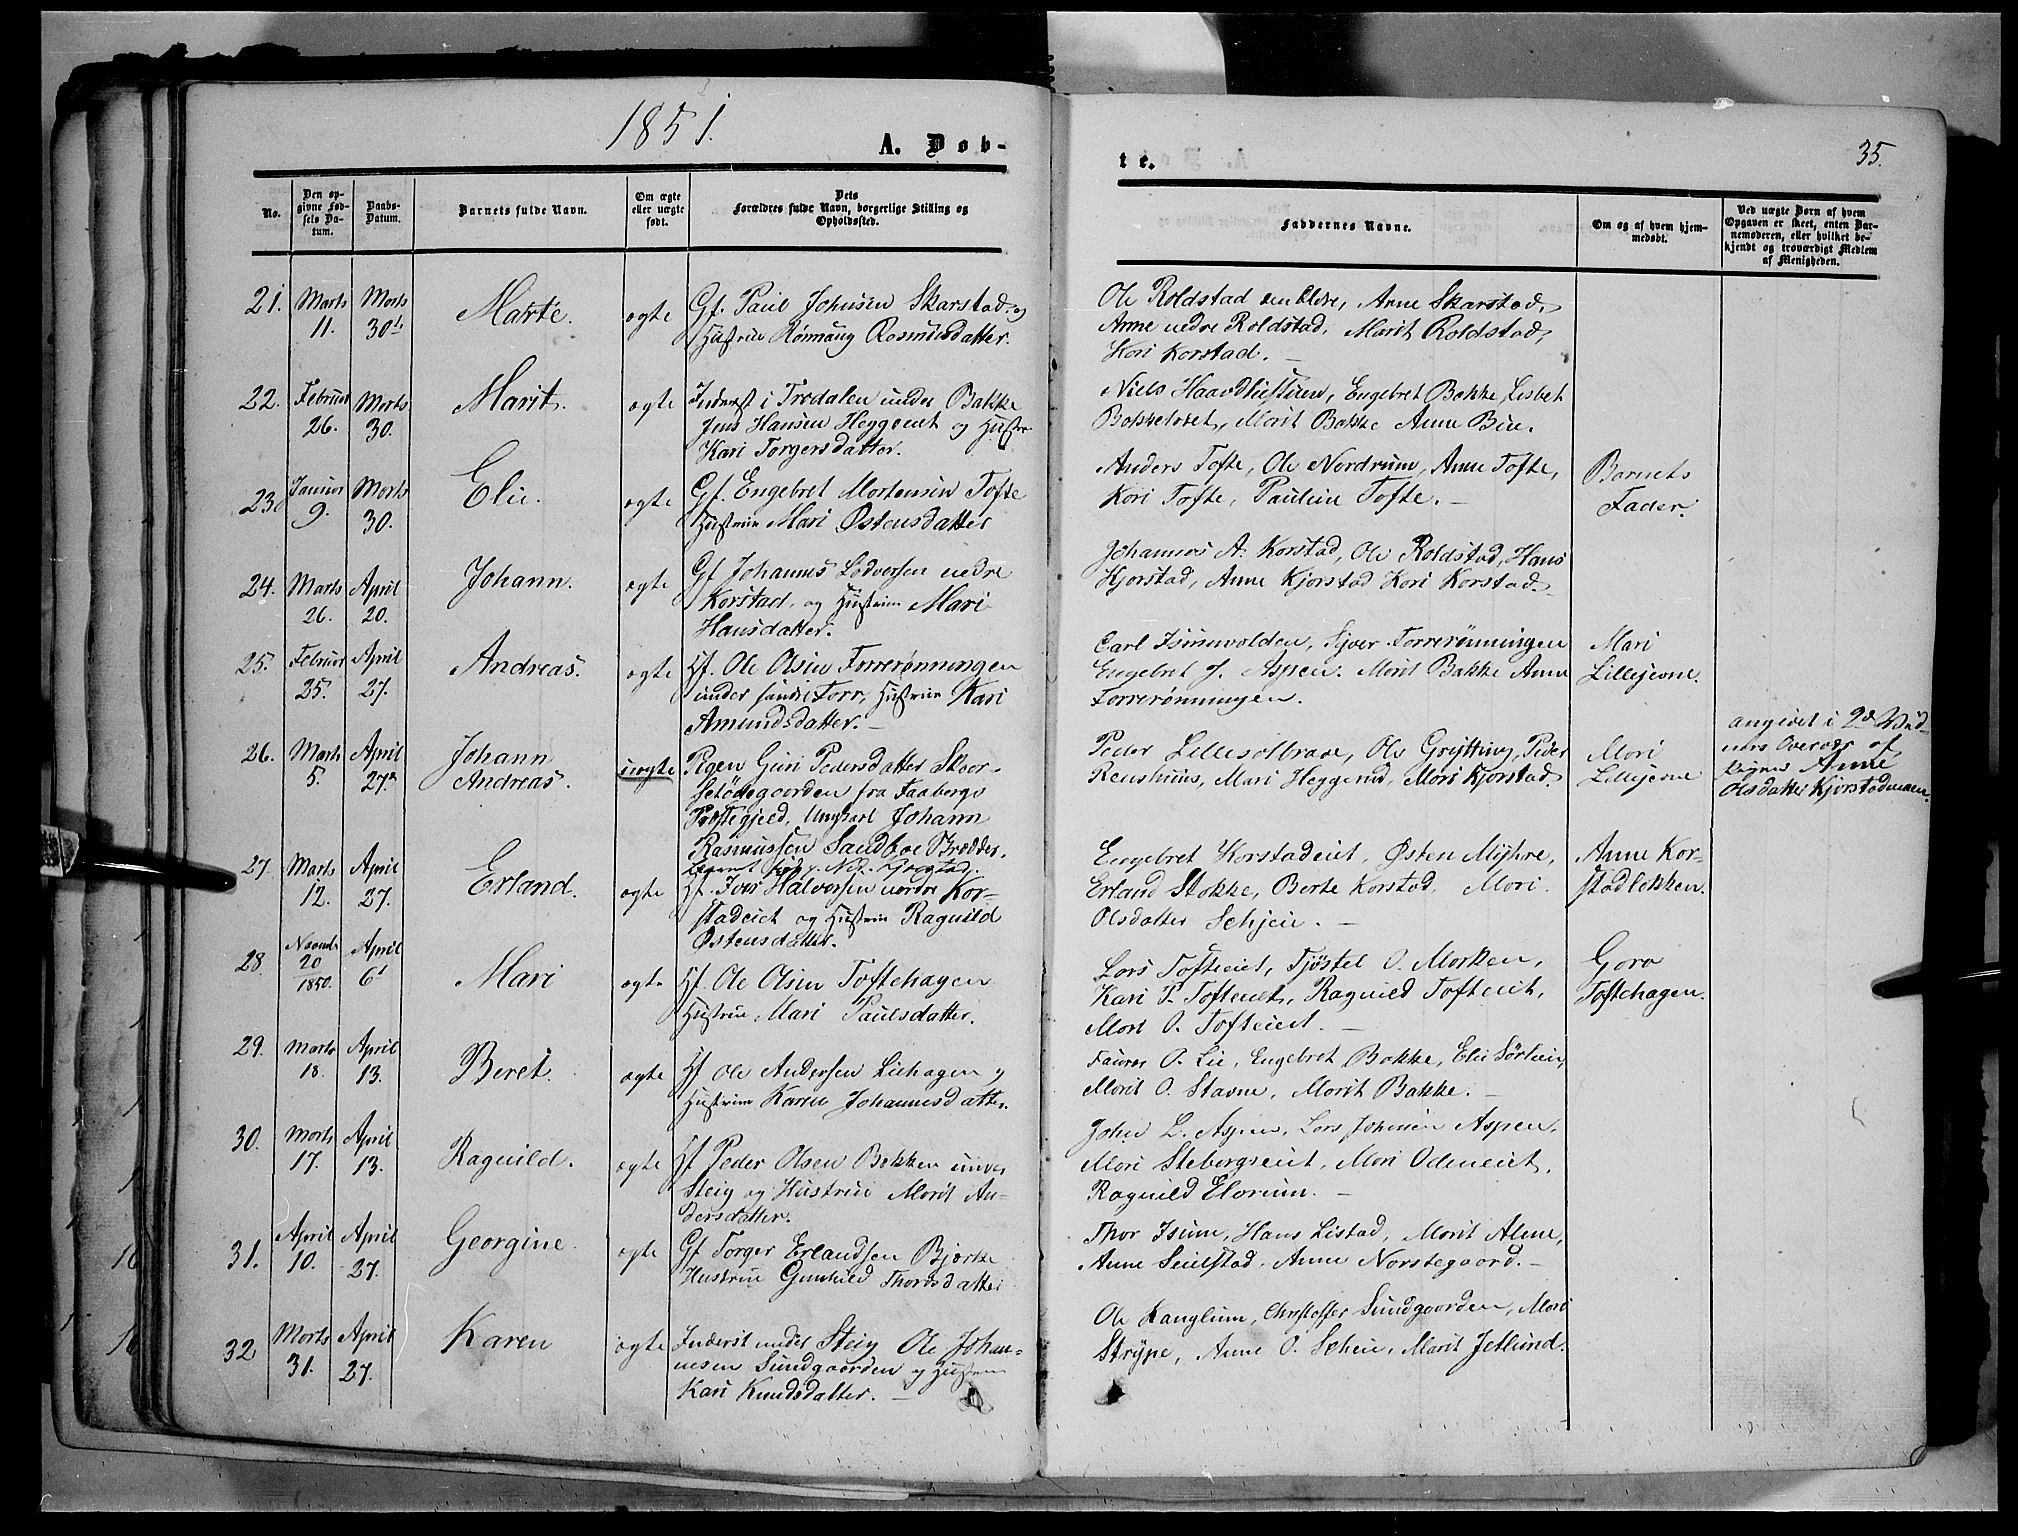 1851.
A. Døb-
No.
Den op-
givne Fød-
sels Da-
tum.
Daabs-
Datum.
Barnets fulde Navn.
Om ægte
eller uægte
født.
Dets
Forældres fulde Navn, borgerlige Stilling og
Opholdssted.
21.
Marts
11.
Marts
30te
Marte.
ægte
Gf. Paul Johnsen Skarstad og
Hustrue Rønnaug Rasmusdatter.
22.
Februar
26.
Marts
30.
Marit.
ægte
Inderst i Trødalen under Bakke
Jens Hansen Heggeeiet og Hustrue
Kari Torgersdatter.
23.
Januar
9.
Marts
30.
Elie.
ægte
Gf. Engebret Mortensen Tofte
Hustrue Mari Østensdatter
24.
Marts
26.
April
20.
Johann.
ægte
Gf Johannes Lodversen nedre
Korstad, og Hustrue Mari
Hansdatter.
25.
Februar
25.
April
27.
Andreas.
ægte
Hf. Ole Olsen Forrerønningen
under søndre Forr, Hustrue Kari
Amundsdatter. –
26.
Marts
5.
April
27.
Johann
Andreas.
uægte
Pigen Guri Pedersdatter Skaar-
setødegaarden fra Faabergs
Præstegjeld, Ungkarl Johann
Rasmussen Sandboe
27.
Marts
12.
April
27.
Erland.
ægte
Hf. Iver Halvorsen nordre Kor-
stadeiet og Hustrue Ragnild
Østensdatter.
28.
Novemb.
20
1850.
April
6
Mari
ægte
Hf. Ole Olsen Toftehagen
Hustrue Mari Paulsdatter.
29.
Marts
18.
April
13.
Beret.
ægte
Hf Ole Andersen Liehagen og
Hustrue Karen Johannesdatter.
30.
Marts
17.
April
13.
Ragnild.
ægte
Hf Peder Olsen Bakken under
Steig og Hustrue Marit An-
dersdatter.
31.
April
10.
April
27.
Georgine.
ægte
Gf Torger Erlandsen Bjørke
Hustrue Gunhild Thordsdatter
32
Marts
31.
April
27.
Karen
ægte
Inderst under Steig Ole Johan-
nesen Sundgaarden og Hustrue
Kari Knudsdatter. –
te.
35.
Faddernes Navne.
Om og af hvem hjem-
medøbt.
Ved uægte Børn af hvem
Opgaven er skeet, enten Bar-
nemoderen, eller hvilket be-
kjendt og troværdigt Medlem
af Menigheden.
Ole Roldstad den Eldre, Arne Skarstad,
Anne nedre Roldstad, Marit Roldstad,
Kari Korstad. –
Niels Engebret Bakke, Lisbet
Bakkeløkket, Marit Bakke Anne Bue.
Anders Tofte, Ole Nordrum, Anne Tofte,
Kari Tofte, Pauline Tofte. –
Barnets
Fader.
Johannes A. Korstad, Ole Roldstad, Hans
Kjorstad, Anne Kjorstad Kari Korstad. –
Carl Isumvolden, Sjver Forrerønningen
Engebret J. Aspen. Marit Bakke Anne
Forrerønningen.
Mari
Lillejorne.
Peder Lillesolbraae, Ole Grytting, Peder
Renshuus, Mari Heggerud, Mari Kjorstad.
Mari
Lillejorne
angivet i 2de Vid-
ners Overvær af
Pigen Anne
Olsdatter Kjorstadmoen.
Engebret Korstadeiet, Østen Myhre,
Erland Stokke, Berte Korstad, Mari
Olsdatter Schjeie. –
Anne Kor-
stadløkken.
Lars Tofteeiet, Tjøstel O. Morken,
Kari P. Tofteeiet, Ragnild Tofteeiet,
Mari O. Tofteeiet. –
Goro
Toftehagen.
Laures O. Lie, Engebret Bakke, Elie Sørlien,
Marit O. Stavne, Marit Bakke. –
John L. Aspen, Lars Johnsen Aspen,
Mari Stebergseiet, Mari Odeneiet,
Ragnild Elorum. –
Thor Isum, Hans Listad, Marit Alme,
Anne Seielstad, Anne Norstegaard. –
Ole Langlum, Christoffer Sundgaarden, Mari
Strype, Anne O. Scheie, Marit Jetlund.